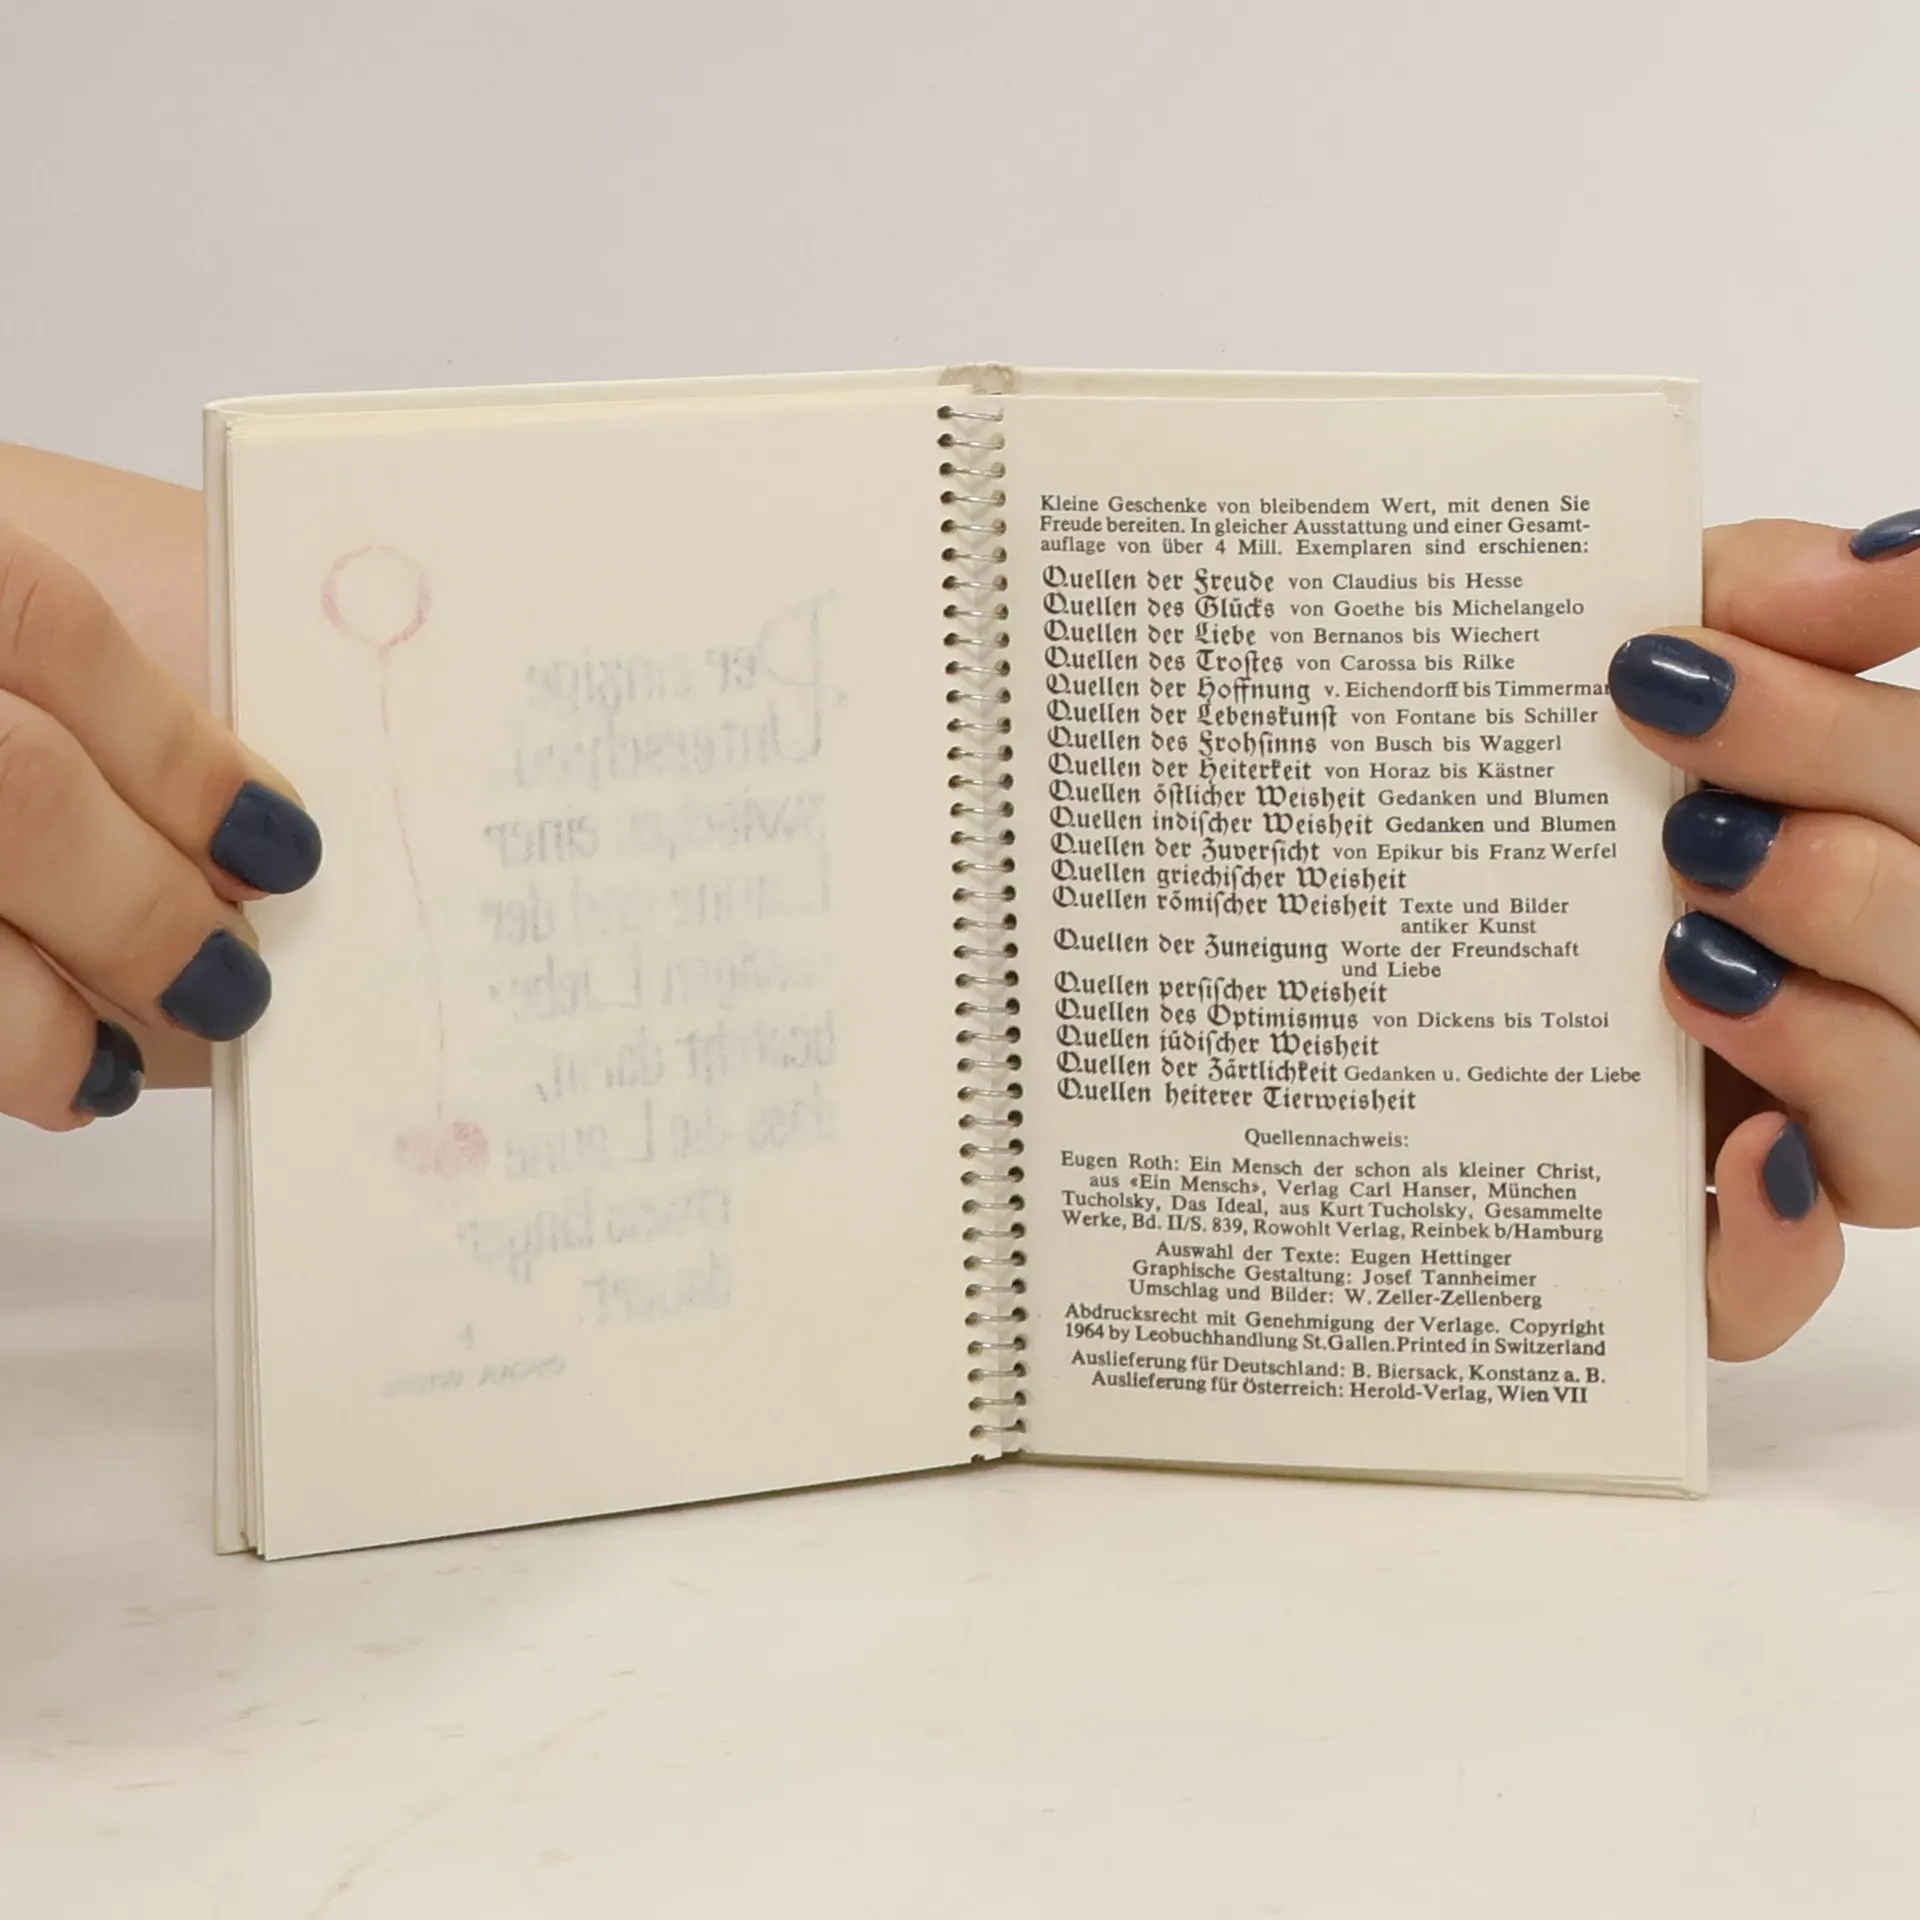 Der einzige
Unterschied
zwischen einer
Laune und der
ewigen Liebe
besteht darin,
dass die Laune
etwas länger
dauert.
Kleine Geschenke von bleibendem Wert, mit denen Sie
Freude bereiten. In gleicher Ausstattung und einer Gesamt-
auflage von über 4 Mill. Exemplaren sind erschienen:
Quellen der Freude von Claudius bis Hesse
Quellen des Glücks von Goethe bis Michelangelo
Quellen der Liebe von Bernanos bis Wiechert
Quellen des Trostes von Carossa bis Rilke
Quellen der Hoffnung v. Eichendorff bis
Quellen der Lebenskunst von Fontane bis Schiller
Quellen des Frohsinns von Busch bis Waggerl
Quellen der Heiterkeit von Horaz bis Kästner
Quellen östlicher Weisheit Gedanken und Blumen
Quellen indischer Weisheit Gedanken und Blumen
Quellen der Zuversicht von Epikur bis Franz Werfel
Quellen griechischer Weisheit
Quellen römischer Weisheit Texte und Bilder
antiker Kunst
Quellen der Zuneigung Worte der Freundschaft
und Liebe
Quellen persischer Weisheit
Quellen des Optimismus von Dickens bis Tolstoi
Quellen jüdischer Weisheit
Quellen der Zärtlichkeit Gedanken u. Gedichte der Liebe
Quellen heiterer Tierweisheit
Quellennachweis:
Eugen Roth: Ein Mensch der schon als kleiner Christ,
aus «Ein Mensch», Verlag Carl Hanser, München
Tucholsky, Das Ideal, aus Kurt Tucholsky, Gesammelte
Werke, Bd. II/S. 839, Rowohlt Verlag, Reinbek b/Hamburg
Auswahl der Texte: Eugen Hettinger
Graphische Gestaltung: Josef Tannheimer
Umschlag und Bilder: W. Zeller-Zellenberg
Abdrucksrecht mit Genehmigung der Verlage. Copyright
1964 by Leobuchhandlung St.Gallen. Printed in Switzerland
Auslieferung für Deutschland: B. Biersack, Konstanz a. B.
Auslieferung für Österreich: Herold-Verlag, Wien VII